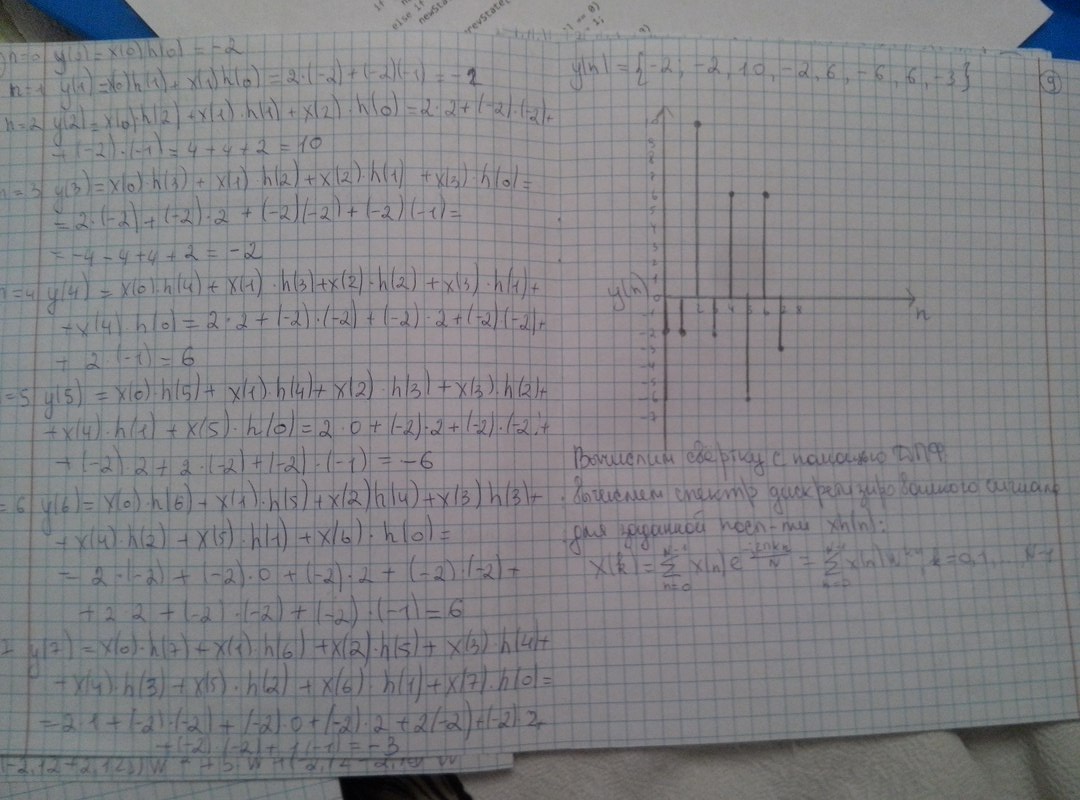 n=0 y(0)=x(0)h(0)=-2
n=1 y(1)=x(0)h(1)+x(1)h(0)=2·(-2)+(-2)(-1)=-2
n=2 y(2)=x(0)·h(2)+x(1)·h(1)+x(2)·h(0)=2·2+(-2)·(-2)+
+(-2)·(-1)=4+4+2=10
n=3 y(3)=x(0)·h(3)+x(1)·h(2)+x(2)·h(1)+x(3)·h(0)=
=2·(-2)+(-2)·2+(-2)(-2)+(-2)(-1)=
=-4-4+4+2=-2
n=4 y(4)=x(0)·h(4)+x(1)·h(3)+x(2)·h(2)+x(3)·h(1)+
+x(4)·h(0)=2·2+(-2)·(-2)+(-2)·2+(-2)(-2)+
+2·(-1)=6
=5 y(5)=x(0)·h(5)+x(1)·h(4)+x(2)·h(3)+x(3)·h(2)+
+x(4)·h(1)+x(5)·h(0)=2·0+(-2)·2+(-2)·(-2)+
+(-2)·2+2·(-2)+(-2)·(-1)=-6
=6 y(6)=x(0)·h(6)+x(1)·h(5)+x(2)h(4)+x(3)h(3)+
+x(4)·h(2)+x(5)·h(1)+x(6)·h(0)=
=2·(-2)+(-2)·0+(-2)·2+(-2)·(-2)+
+2·2+(-2)·(-2)+(-2)·(-1)=6
y(7)=x(0)·h(7)+x(1)·h(6)+x(2)·h(5)+x(3)·h(4)+
+x(4)·h(3)+x(5)·h(2)+x(6)·h(1)+x(7)·h(0)=
=2·1+(-2)·(-2)+(-2)·0+(-2)·2+2(-2)+(-2)·2+
+(-2)·(-2)+1(-1)=-3
y(n)={-2,-2,10,-2,6,-6,6,-3}
9
y(n)
n
Вычислим свертку с помощью ДПФ
вычислим спектр дискретизированного сигнала
для заданной посл-ти x(n):